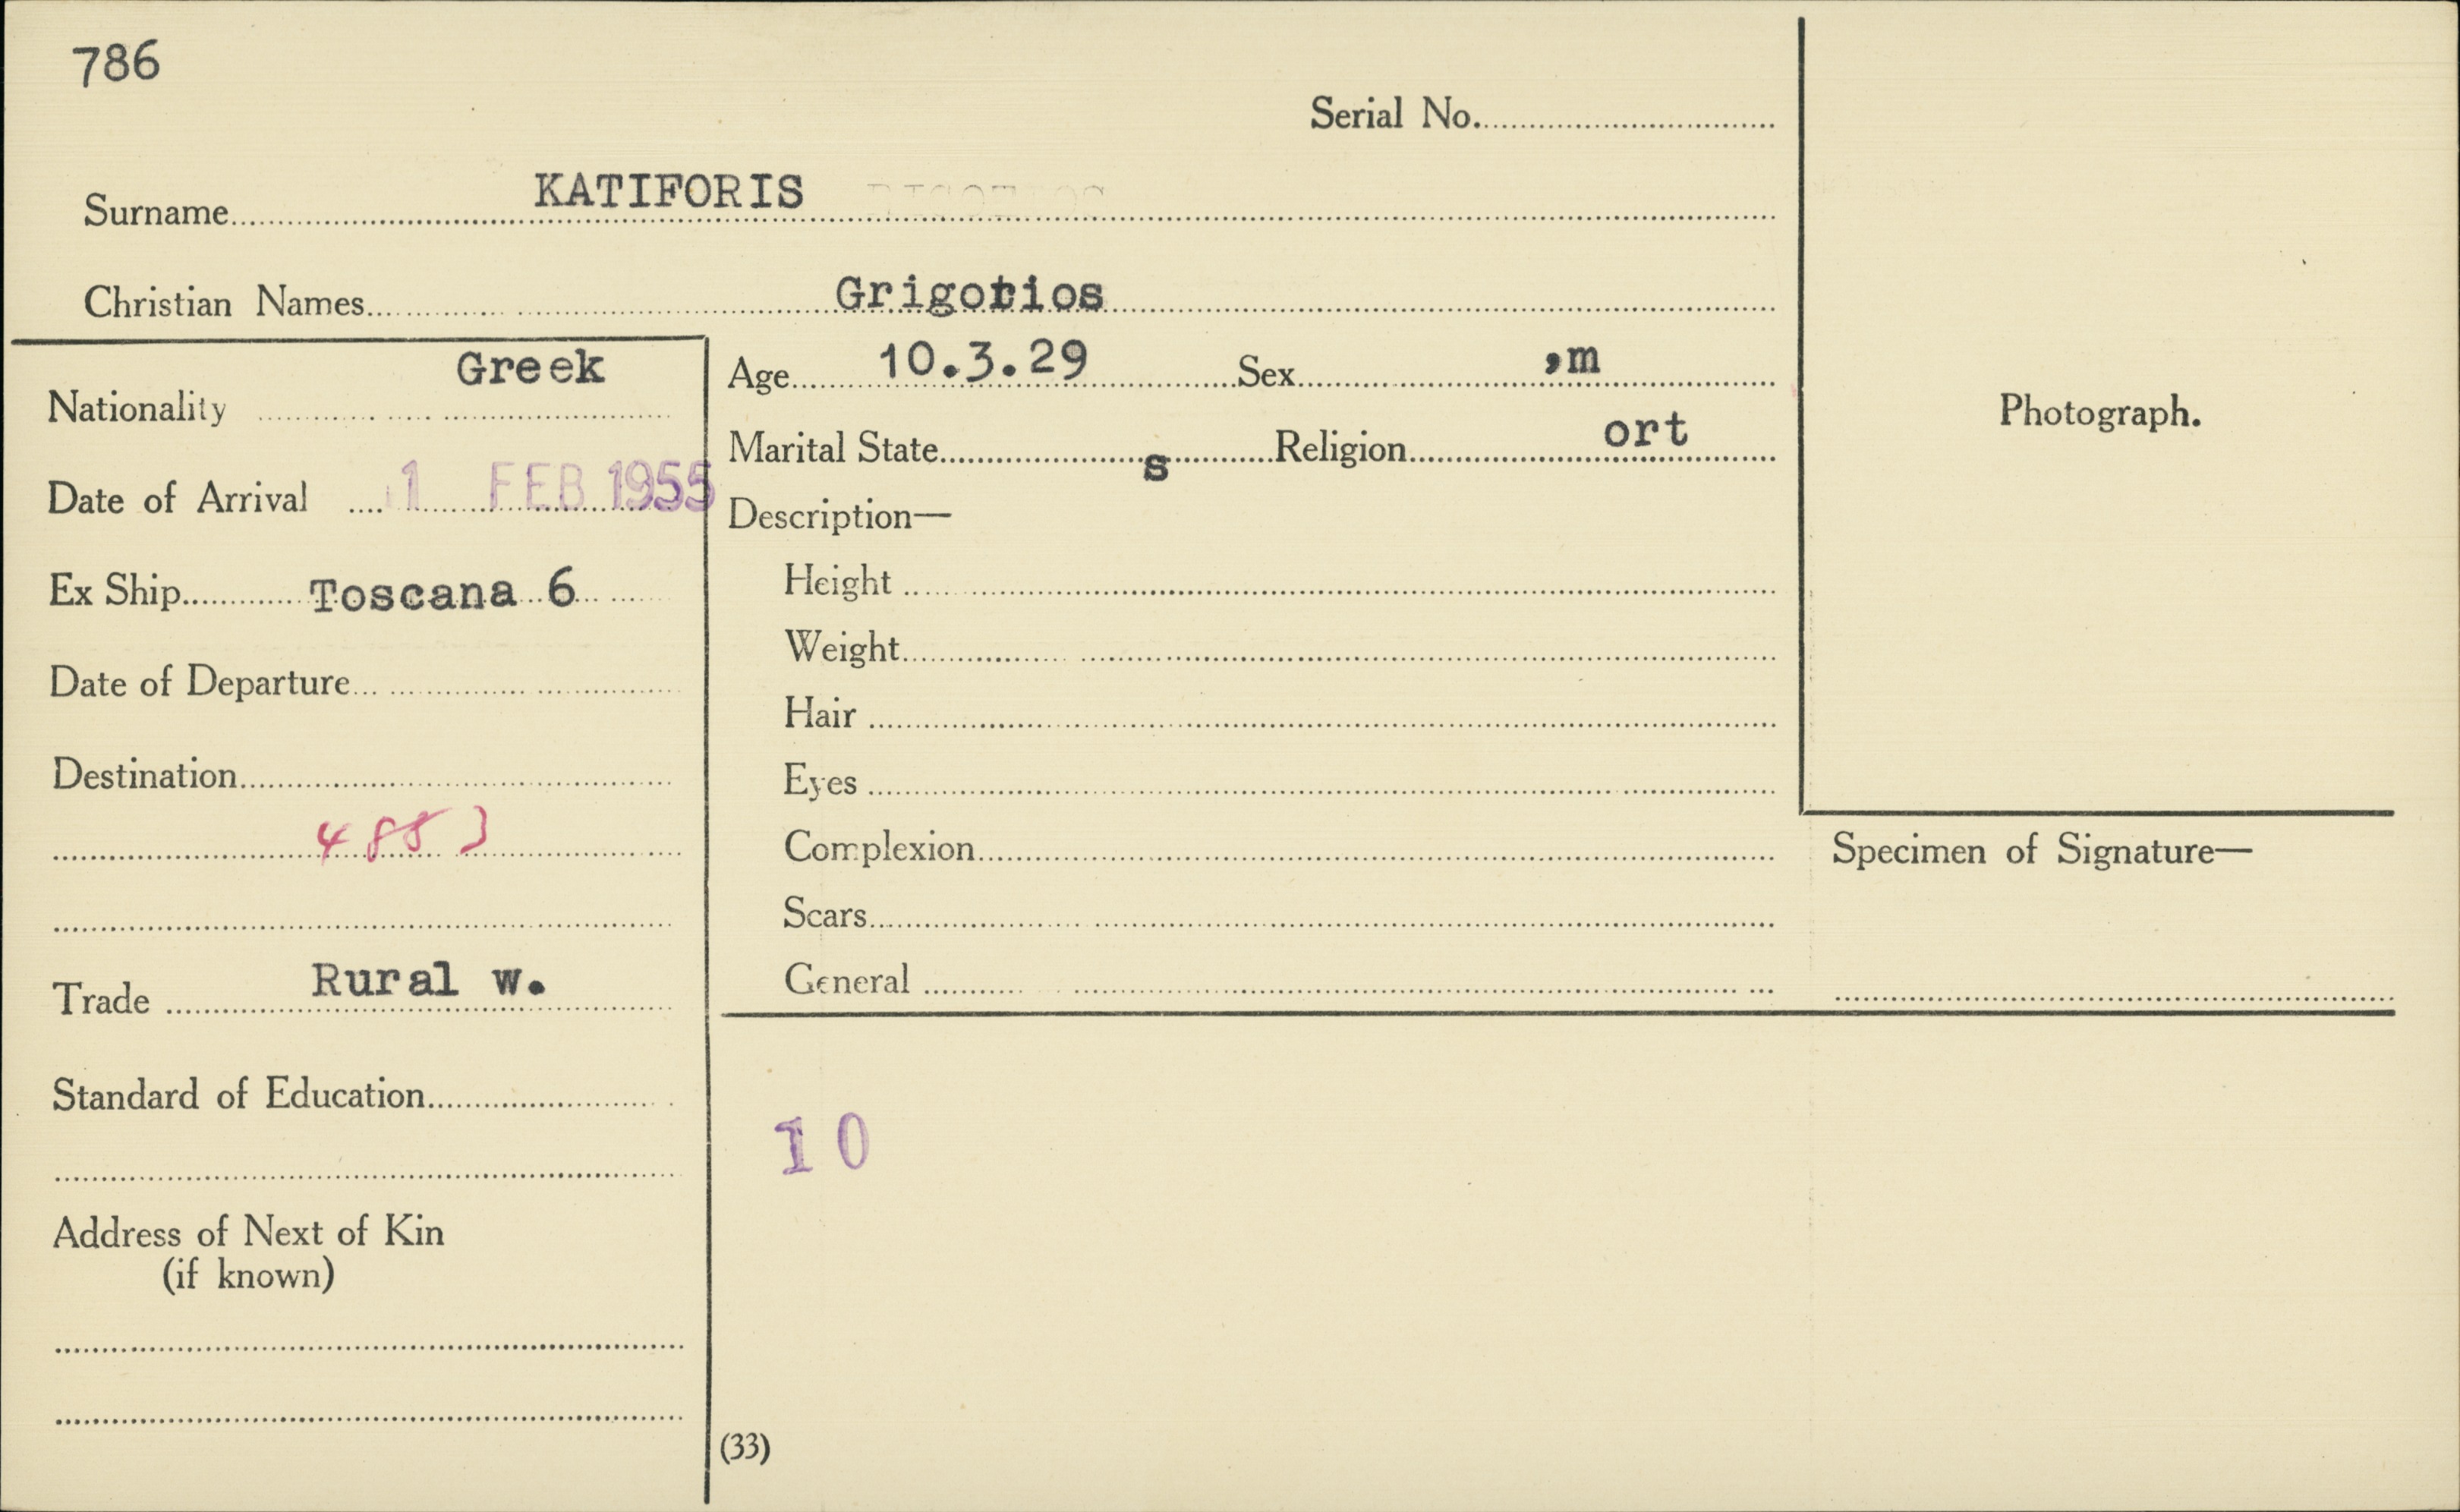 786
Serial No.
Surname KATIFORIS
Christian Names Grigorios
Nationality Greek
Date of Arrival 1 FEB 1955
Ex Ship Toscana 6
Date of Departure
Destination
4853
Trade Rural w.
Standard of Education
Address of Next of Kin
(if known)
Age 10.3.29 Sex ,m
Marital State s Religion ort
Description—
Height
Weight
Hair
Eyes
Complexion
Scars
General
10
(33)
Photograph.
Specimen of Signature—